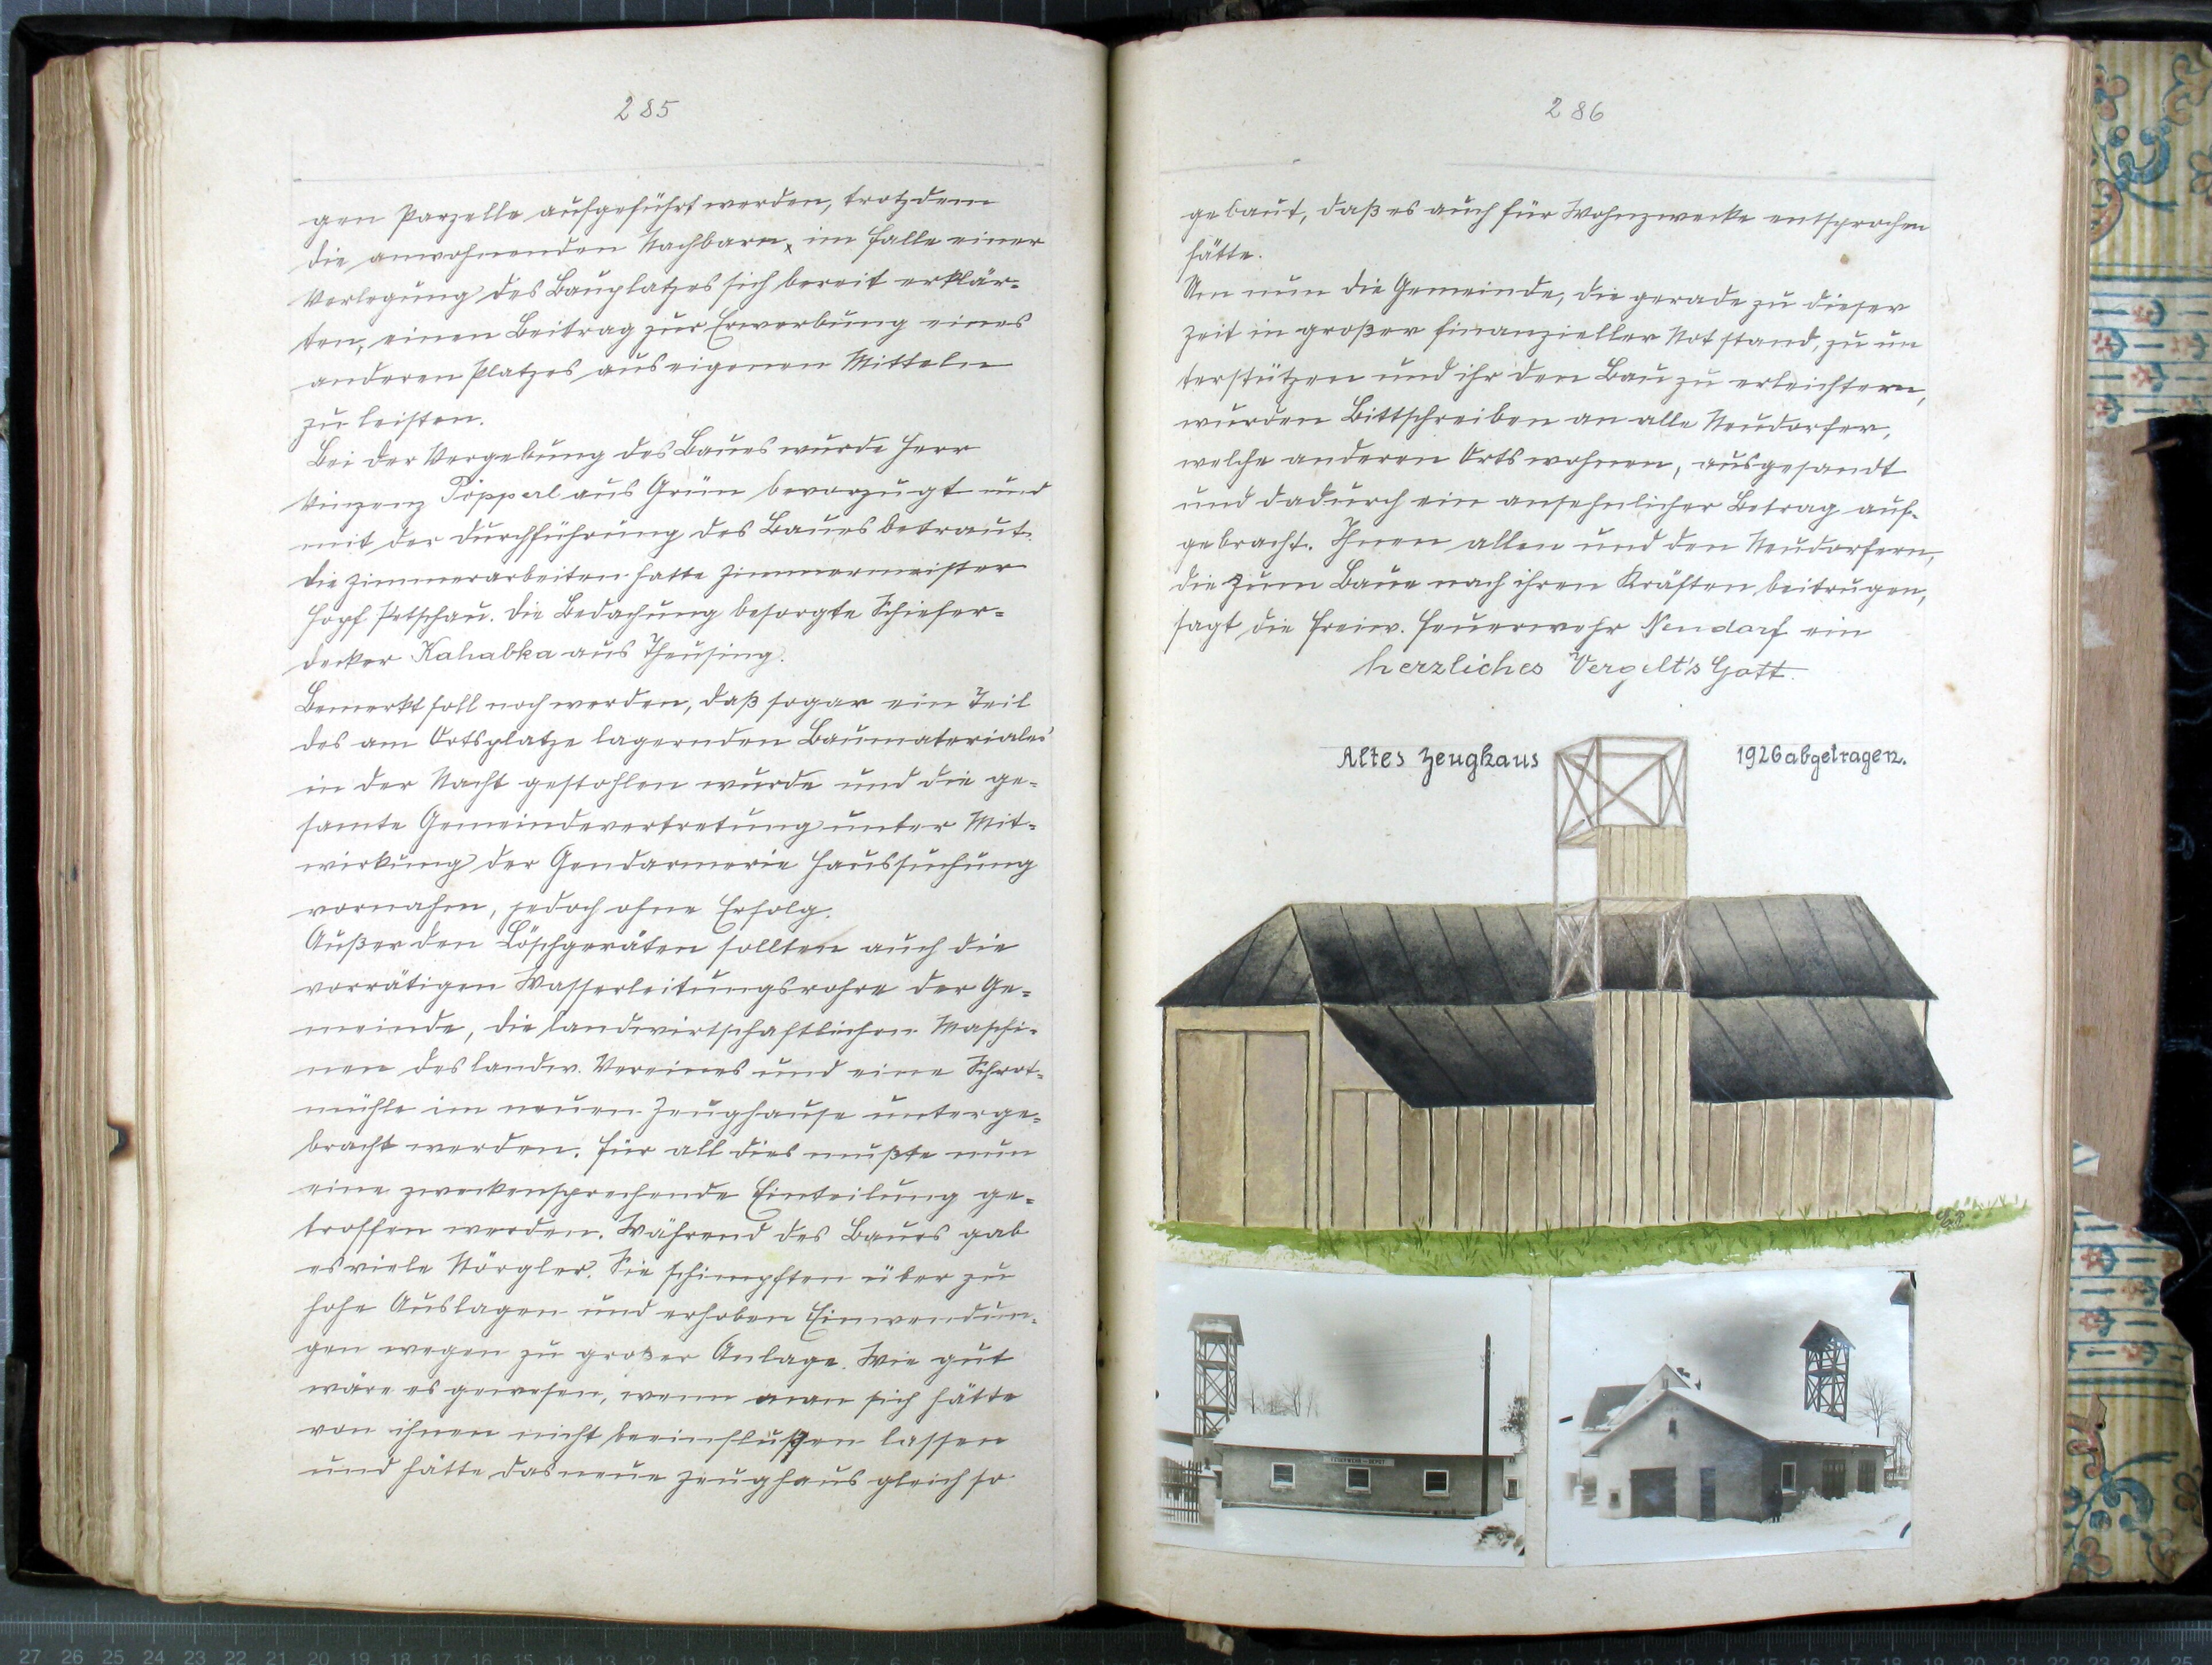 285
gen Parzelle aufgeführt werden, trotzdem
die anwohnenden Nachbarn, im Falle einer
Verlegung des Bauplatzes sich bereit erklär-
ten, einen Beitrag zur Erwerbung eines
anderen Platzes aus eigenen Mitteln
zu leisten.
Bei der Vergebung des Baues wurde Herr
Vinzenz Pöpperl aus Grün bevorzugt und
mit der Durchführung des Baues betraut.
Die Zimmerarbeiten hatte Zimmermeister
Hopf Petschau. Die Bedachung besorgte Schiefer-
decker Kahabka aus Theusing.
Bemerkt soll noch werden, daß sogar ein Teil
des am Ortsplatze lagernden Baumateriales
in der Nacht gestohlen wurde und die ge-
samte Gemeindevertretung unter Mit-
wirkung der Gendarmerie Haussuchung
vornahm, jedoch ohne Erfolg.
Außer den Löschgeräten sollten auch die
vorrätigen Wasserleitungsrohre der Ge-
meinde, die landwirtschaftlichen Maschi-
nen des landw. Vereines und eine Schrot-
mühle im neuen Zeughause unterge-
bracht werden. Für all dies mußte nun
eine zweckensprechende Einteilung ge-
troffen werden. Während des Baues gab
es viele Nörgler. Sie schimpften über zu
hohe Auslagen und erhoben Einwendun-
gen wegen zu großer Anlage. Wie gut
wäre es gewesen, wenn man sich hätte
von ihnen nicht beeinflußen lassen
und hätte das neue Zeughaus gleich so
286
gebaut, daß es auch für Wohnzwecke entsprochen
hätte.
Um nun die Gemeinde, die gerade zu dieser
Zeit in großer finanzieller Not stand, zu un
terstützen und ihr den Bau zu erleichtern,
wurden Bittschreiben an alle Neudorfer,
welche anderen Orts wohnen, ausgesandt
und dadurch ein ansehnlicher Betrag auf-
gebracht. Ihnen allen und den Neudorfern,
die zum Baue nach ihren Kräften beitrugen,
sagt die Freiw. Feuerwehr Neudorf ein
herzliches Vergelt's Gott.
Altes Zeughaus 1926 abgetragen.
FEUERWEHR-DEPOT